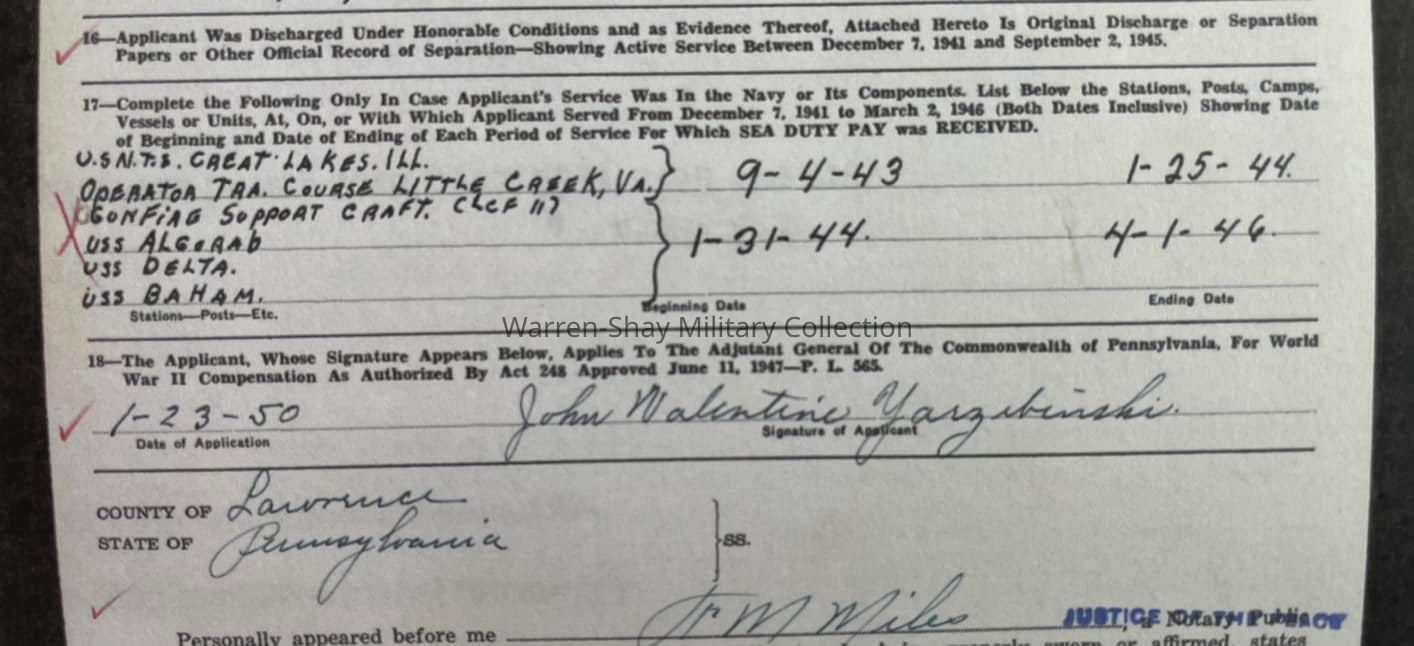 16—Applicant Was Discharged Under Honorable Conditions and as Evidence Thereof, Attached Hereto Is Original Discharge or Separation
Papers or Other Official Record of Separation—Showing Active Service Between December 7, 1941 and September 2, 1945.
17—Complete the Following Only In Case Applicant's Service Was In the Navy or Its Components. List Below the Stations, Posts, Camps,
Vessels or Units, At, On, or With Which Applicant Served From December 7, 1941 to March 2, 1946 (Both Dates Inclusive) Showing Date
of Beginning and Date of Ending of Each Period of Service For Which SEA DUTY PAY was RECEIVED.
U.S N.T.S. GREAT LAKES. ILL.
OPERATOR TRA. COURSE LITTLE CREEK, VA. 9-4-43 1-25-44.
SUPPORT CRAFT.
USS ALGORAB 1-31-44. 4-1-46.
USS DELTA.
USS BAHAM.
Stations—Posts—Etc. Beginning Date Ending Date
Warren-Shay Military Collection
18—The Applicant, Whose Signature Appears Below, Applies To The Adjutant General Of The Commonwealth of Pennsylvania, For World
War II Compensation As Authorized By Act 248 Approved June 11, 1947—P. L. 565.
1-23-50 John Walentine Yarzebinski.
Date of Application Signature of Applicant
COUNTY OF Lawrence
STATE OF Pennsylvania ss.
M Miles JUSTICE Notary Public
Personally appeared before me or affirmed, states